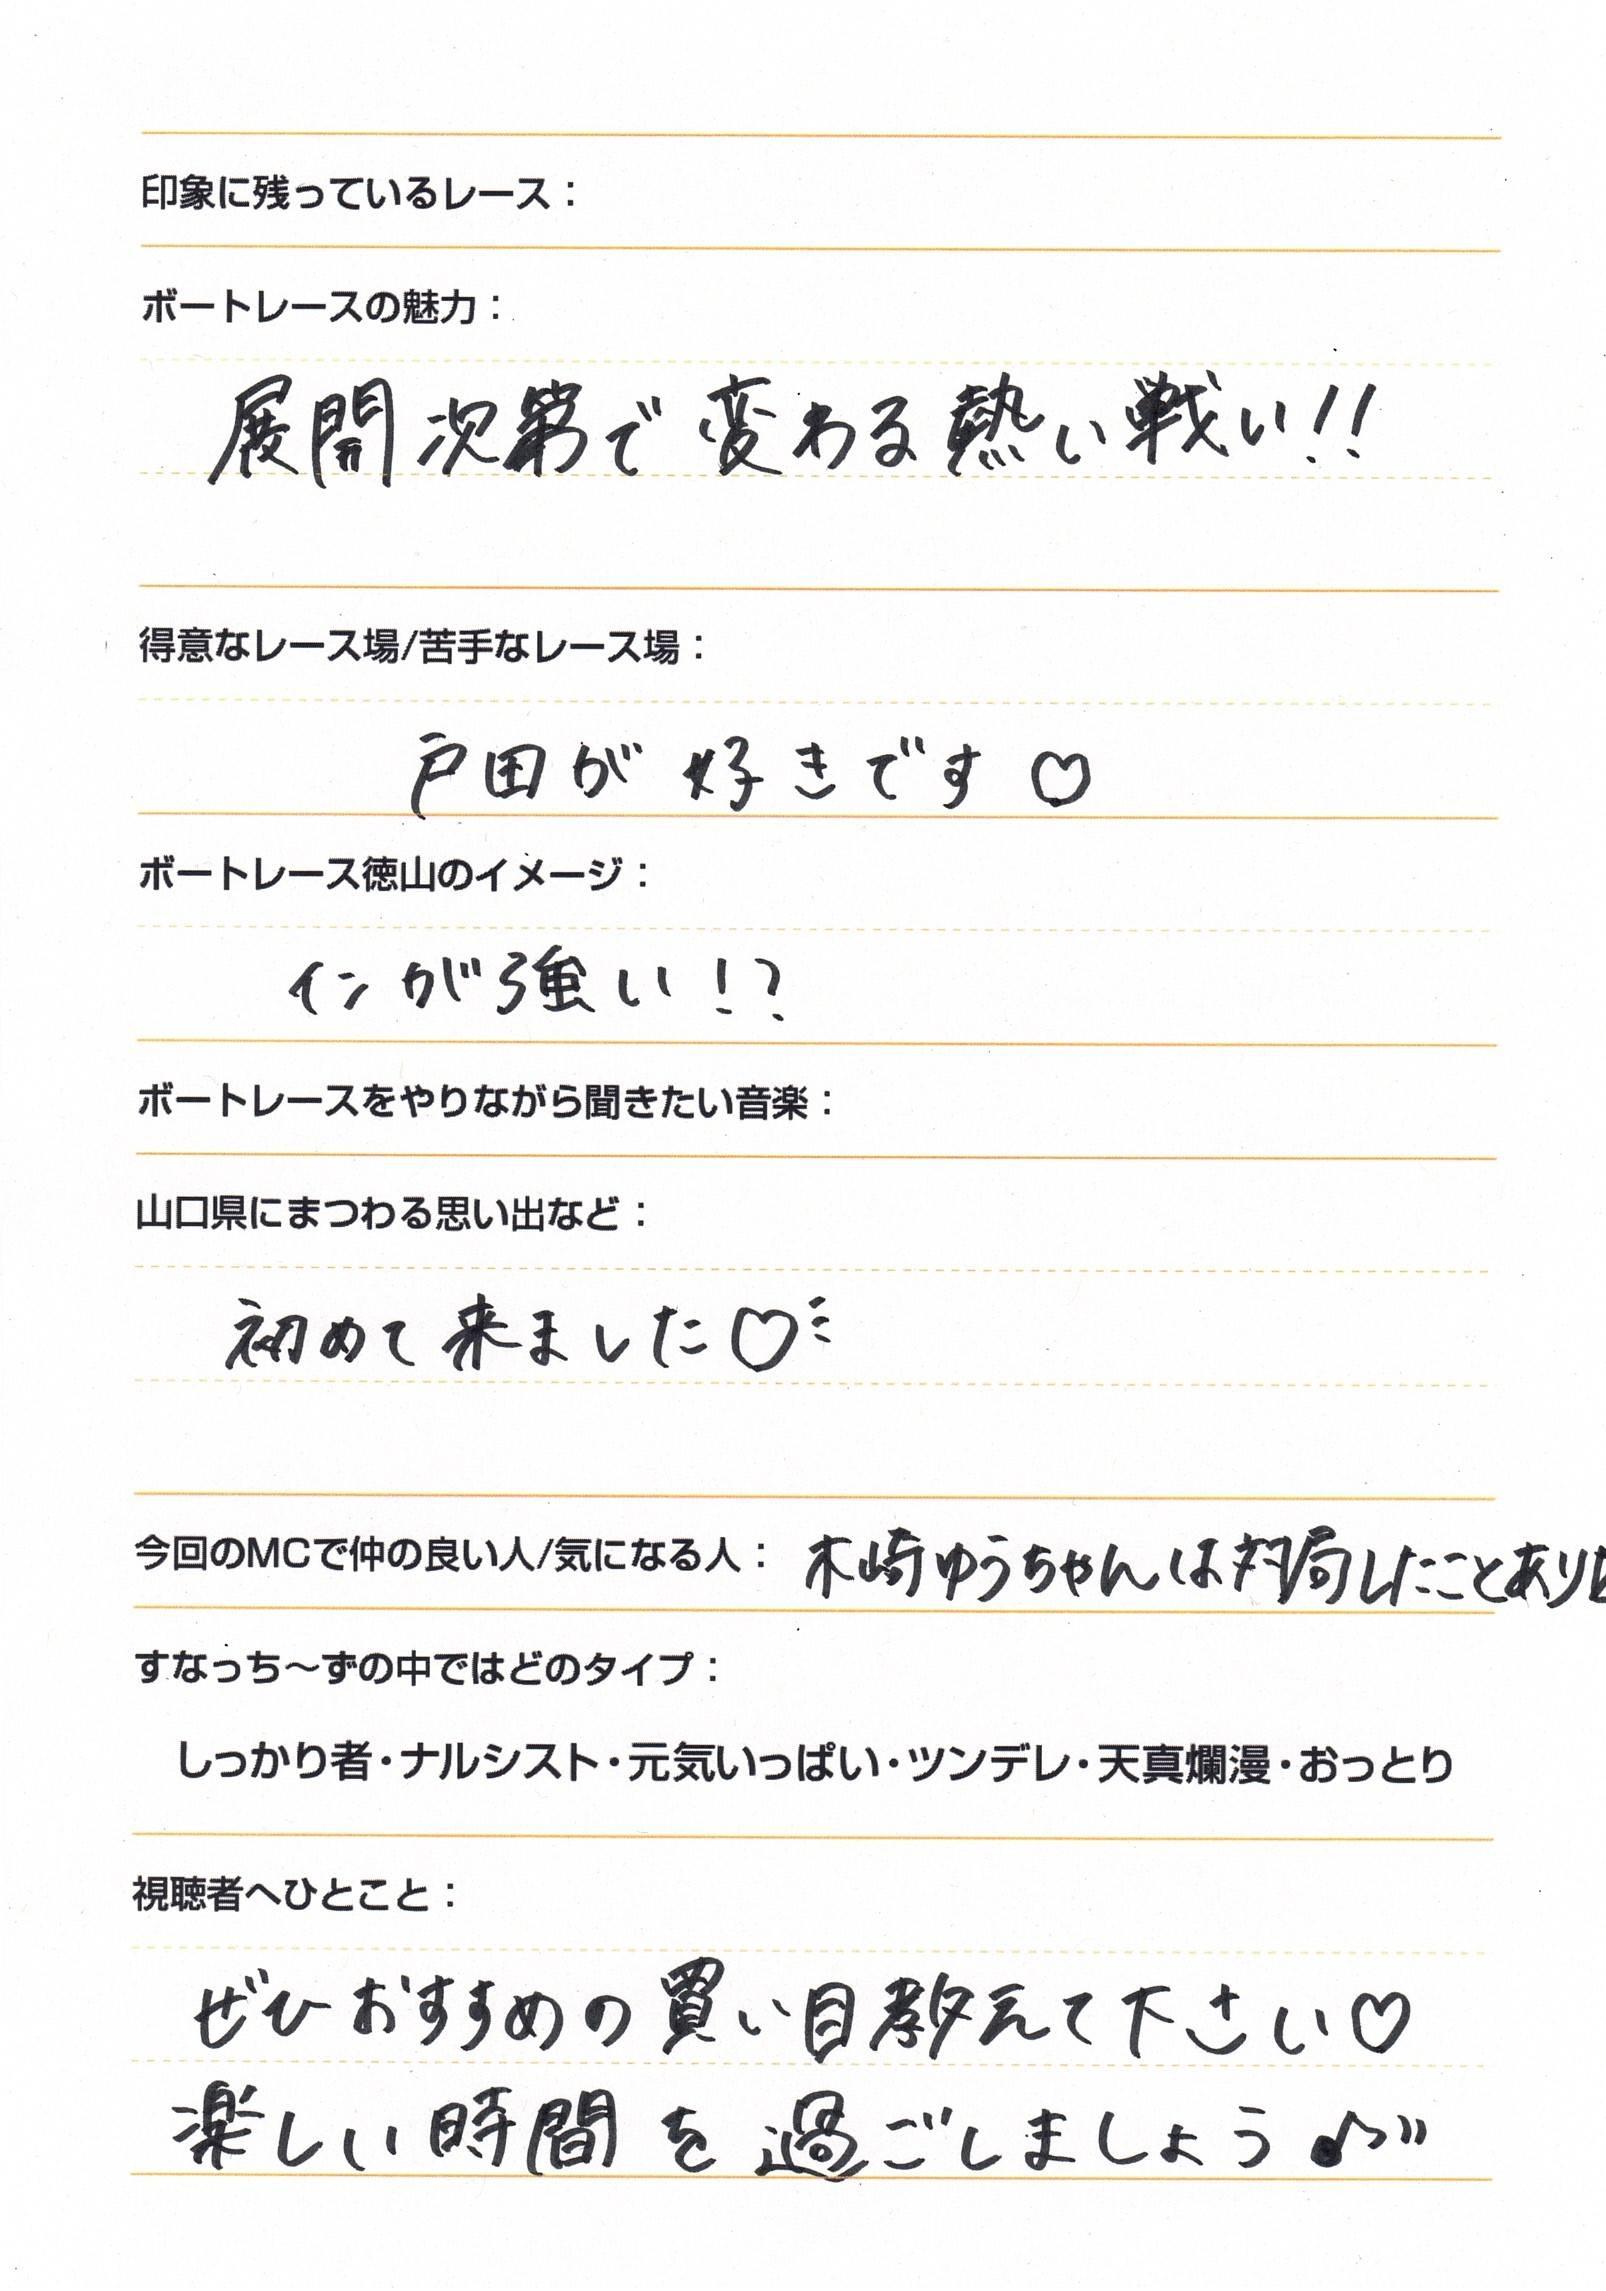 印象に残っているレース：
ボートレースの魅力：
展開次第で変わる熱い戦い!!
得意なレース場/苦手なレース場：
戸田が好きです♡
ボートレース徳山のイメージ：
インが強い!?
ボートレースをやりながら聞きたい音楽：
山口県にまつわる思い出など：
初めて来ました♡
今回のMCで仲の良い人/気になる人： 木崎ゆうちゃんは対局したことあり
すなっち～ずの中ではどのタイプ：
しっかり者・ナルシスト・元気いっぱい・ツンデレ・天真爛漫・おっとり
視聴者へひとこと：
ぜひおすすめの買い目教えて下さい♡
楽しい時間を過ごしましょう♪